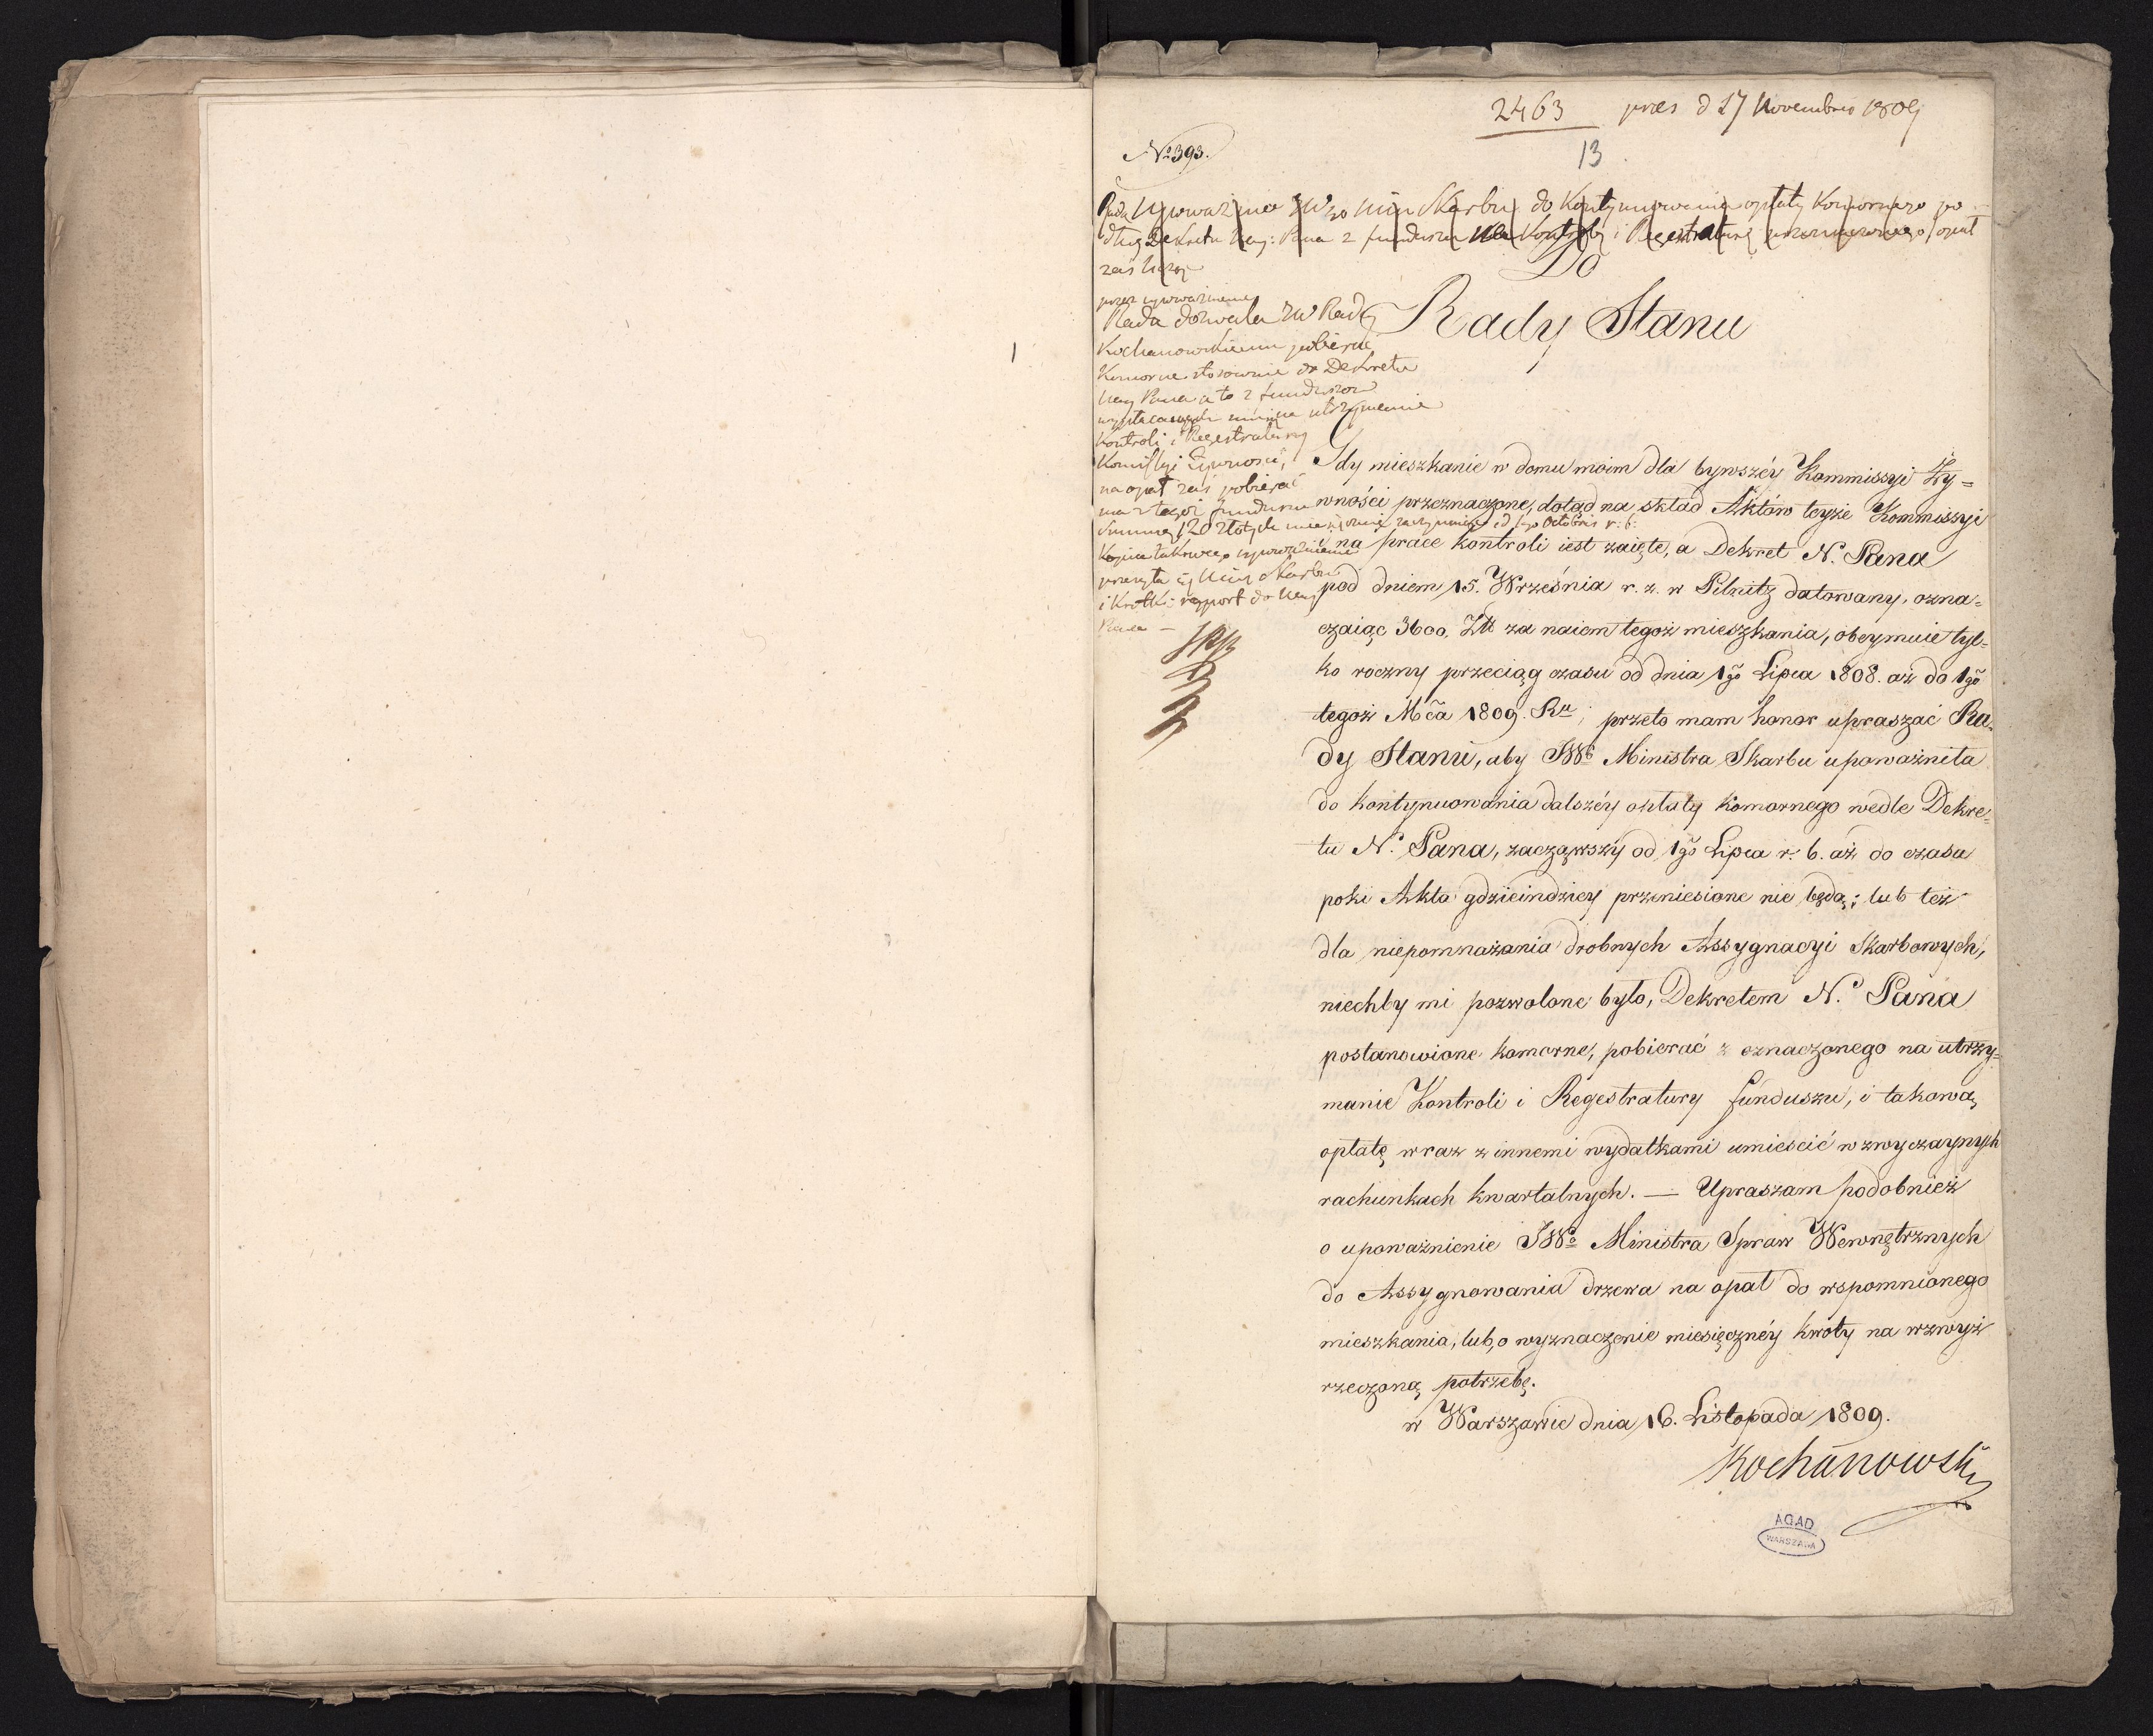 2463 pres d 17 Novembris 1809
13
No 393.
Rada Upoważnia JWgo Min Skarbu do Kontynuowania opłaty Komornego po
dług Dekretu Nay: Pana z funduszu na Kontrolę i Regestraturę opał
zaś
Do
Rady Stanu
przez upoważnienie
Rada dozwala JW Radcy
Kochanowskiemu pobierać
Komorne stosownie do Dekretu
Nay Pana a to z funduszow
utrzymanie
Kontroli i Regestratury
Komissyi Żywności,
na opał zaś pobierać
ma z tegoż funduszu
Summę 120 złotych miesięcznie zaczynając od 1go Octobris r: b:
Kopia takowego upoważnienia
przesyła się Min Skarbu
i krótki rapport do Nay
Pana —
Gdy mieszkanie w domu moim dla bywszéy Kommissyi Ży=
wności przeznaczone, dotąd na skład Aktów teyże Kommissyi
i na prace kontroli iest zaięte, a Dekret N. Pana
pod dniem 15. Września r. z. w Pilnitz datowany, ozna=
czaiąc 3600. Złł za naiem tegoż mieszkania, obeymuie tyl=
ko roczny przeciąg czasu od dnia 1go Lipca 1808. aż do 1go
tegoż Mca 1809. Ru; przeto mam honor upraszać Ra=
dy Stanu, aby JWo Ministra Skarbu upoważniła
do kontynuowania dalszéy opłaty komornego wedle Dekre=
tu N. Pana, zacząwszy od 1go Lipca r. b. aż do czasu
poki Akta gdzieindziey przeniesione nie będą; lub też
dla niepomnażania drobnych Assygnacyi Skarbowych,
niechby mi pozwolone było, Dekretem N. Pana
postanowione komorne, pobierać z oznaczonego na utrzy=
manie Kontroli i Regestratury funduszu, i takową
opłatę wraz z innemi wydatkami umieścić w zwyczaynych
rachunkach kwartalnych. — Upraszam podobnież
o upoważnienie JWo Ministra Spraw Wewnętrznych
do Assygnowania drzewa na opał do wspomnionego
mieszkania, lub, o wyznaczenie miesięcznéy kwoty na wzwyż
rzeczoną potrzebę.
w Warszawie dnia 16. Listopada 1809.
Kochanowski
AGAD
WARSZAWA